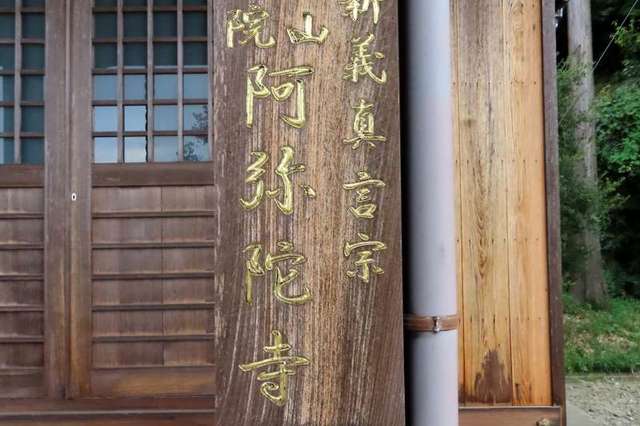 新義真言宗
山阿弥陀寺
院